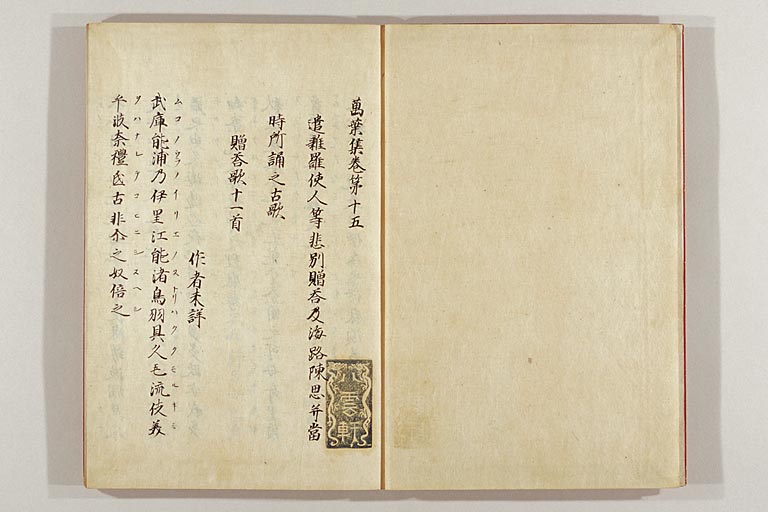 萬葉集巻第十五
遣新羅使人等悲別贈答及海路陳思并當
時所誦之古歌
贈答歌十一首
作者未詳
ムコノウラノイリエノストリハククモルキミ
武庫能浦乃伊里江能渚鳥羽具久毛流伎美
ヲハナレテコヒニシヌヘシ
乎波奈禮弖古非尓之奴倍之
雲軒